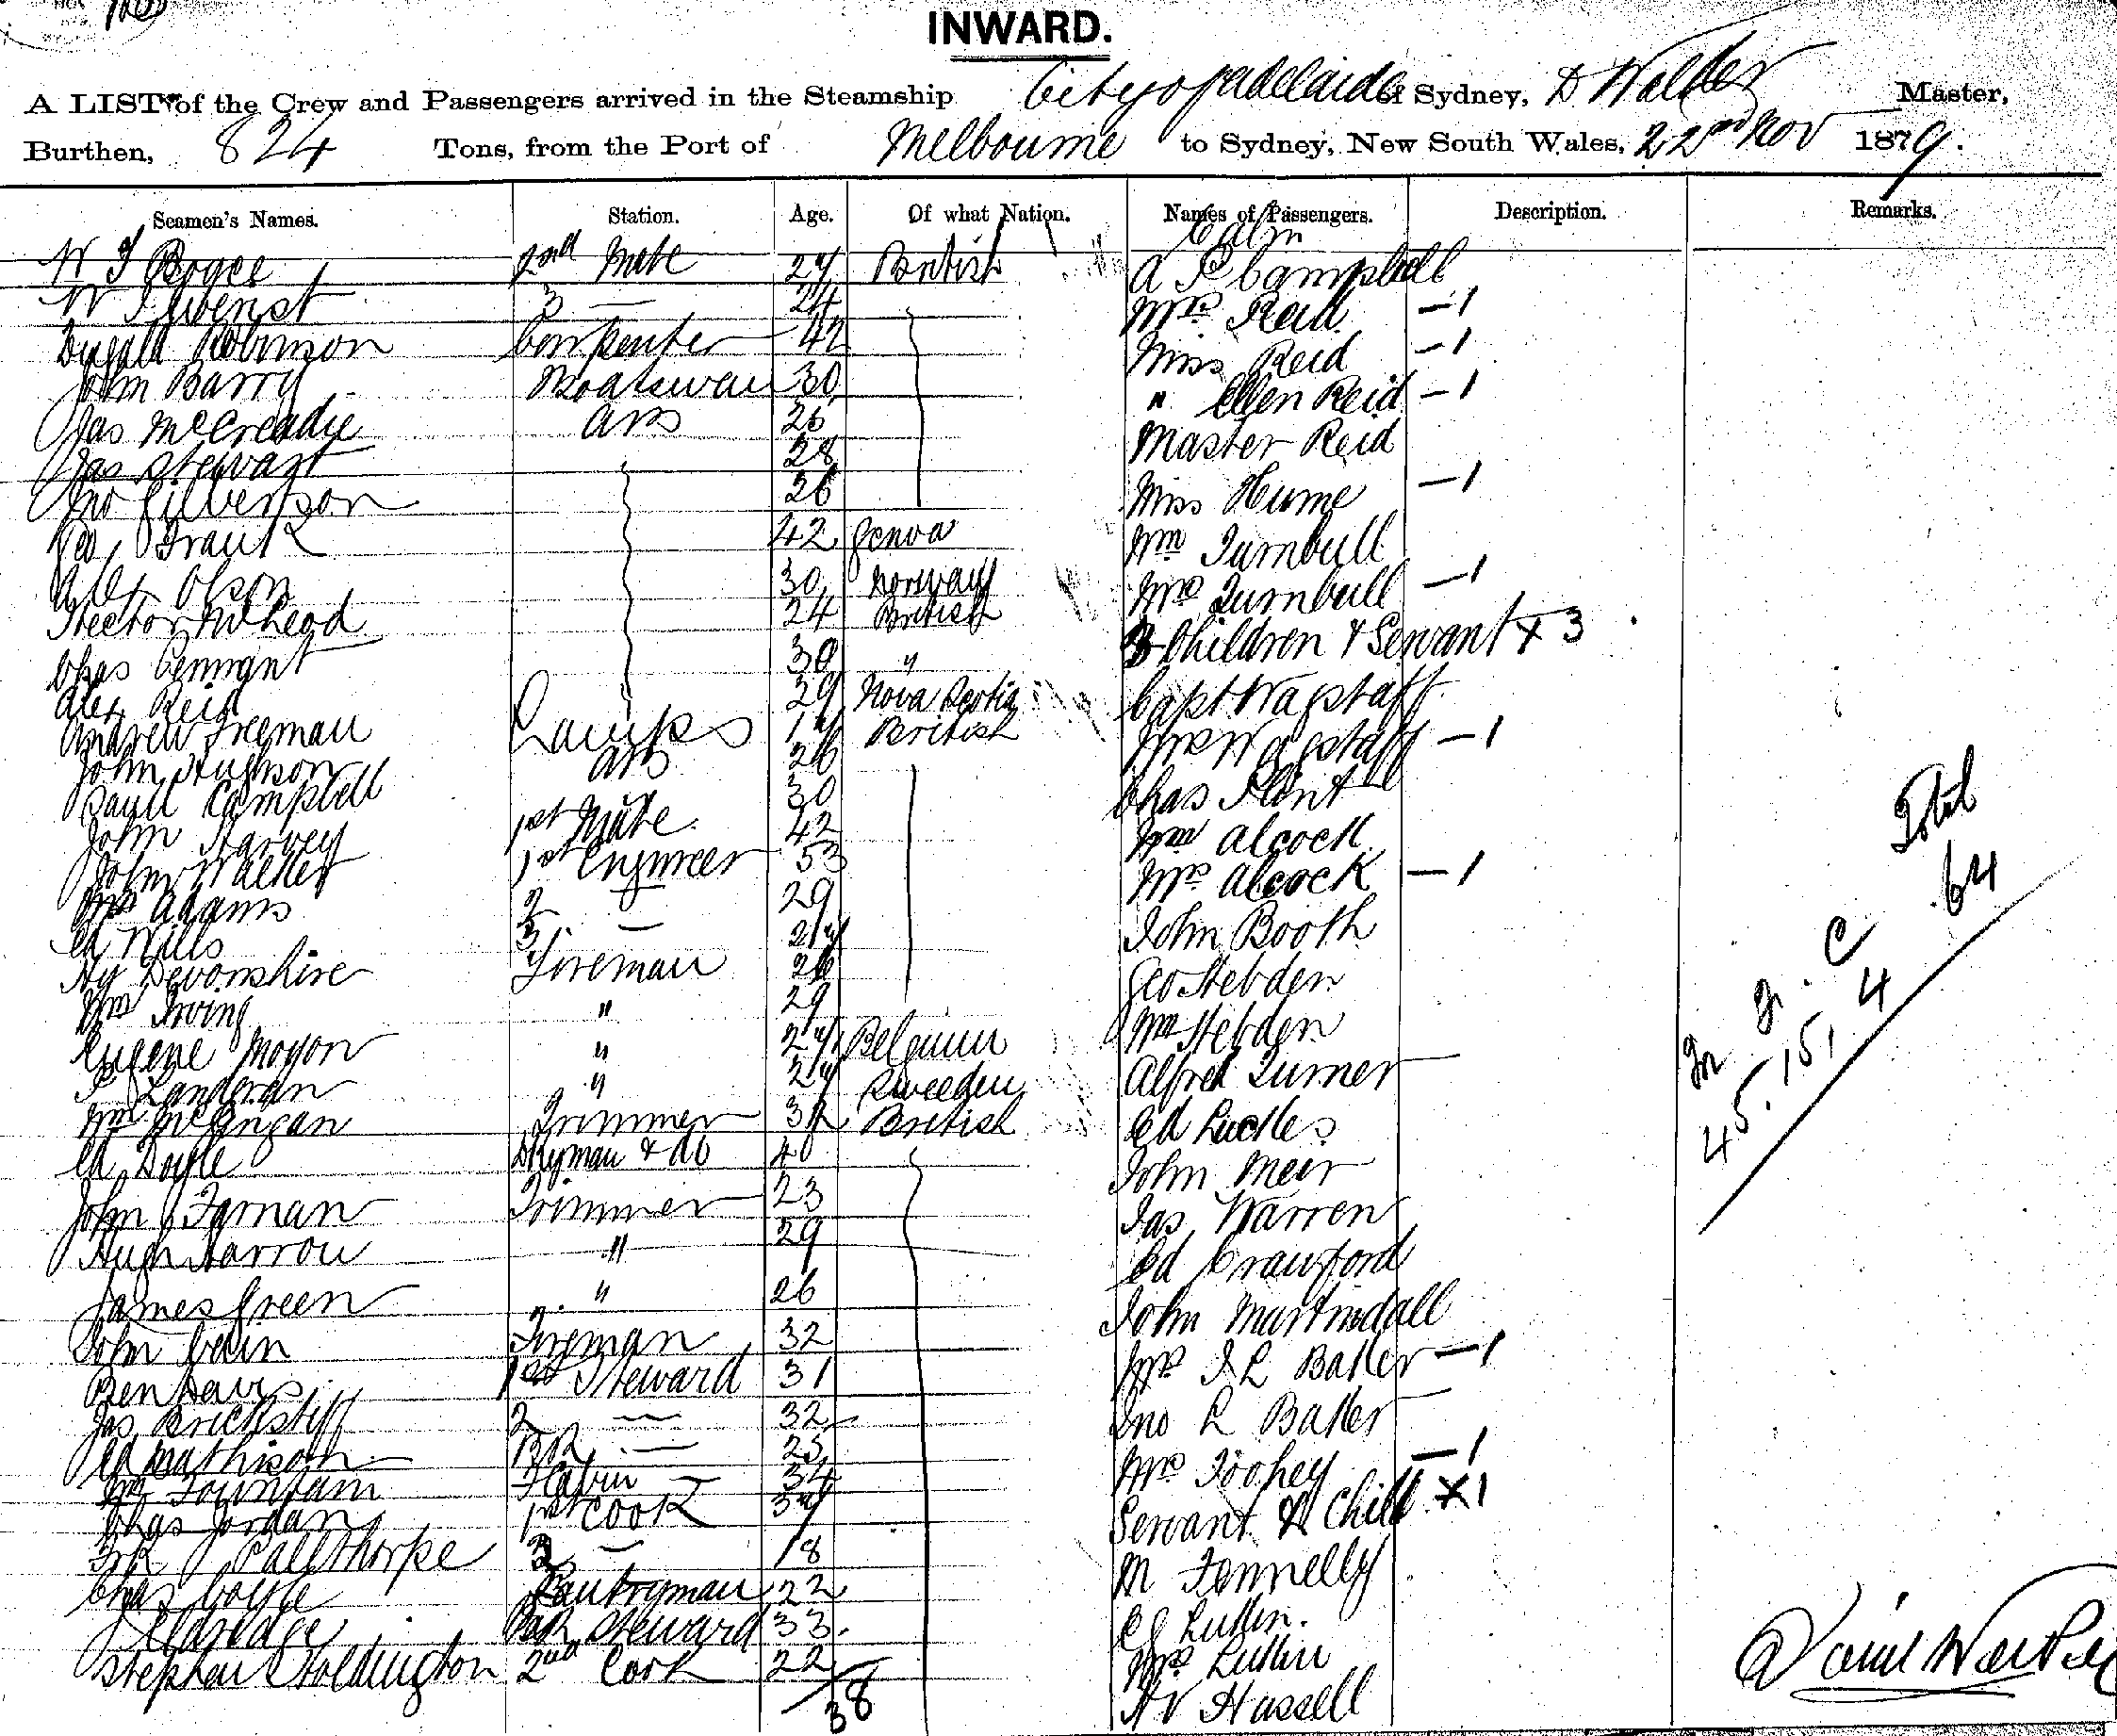 INWARD.
A LIST of the Crew and Passengers arrived in the Steamship City of Adelaide of Sydney, D Walker Master,
Burthen, 824 Tons, from the Port of Melbourne to Sydney, New South Wales, 22nd Nov 1879.
Seamen's Names. Station. Age. Of what Nation. Names of Passengers. Description. Remarks.
Cabin
W J Boyce 2nd Mate 27 British A P Campbell
W 3 — 24 Mrs Reid — 1
Dugald Robinson Carpenter 42 Miss Reid — 1
John Barry Boatswain 30 " Ellen Reid — 1
Jas McCreadie ABs 26 Master Reid
Jas Stewart 28
Jno Gilbertson 26 Miss Hume — 1
Frank 42 Genoa Wm Turnbull
Alex Olson 30 Norway Mrs Turnbull — 1
Hector McLeod 24 British 3 Children & Servant x 3
Chas 30 "
Alex Reid 29 Nova Scotia Capt Wagstaff
Andrew Freeman Lamps 17 British Mrs Wagstaff — 1
John Hughson ABs 26 Chas Flint
Campbell 30
John Harvey 1st Mate 42 Wm Alcock
John Walker 1st Engineer 53 Mrs Alcock — 1
Adams 2 — 29
Ed Wills 3 — 27 John Booth
Hy Devonshire Fireman 26 Geo Hebden
Wm Irving " 29 Wm Hebden
Eugene Moyon " 27 Belgium
" 27 Sweeden Alfred Turner
Wm Trimmer British Ed Luckes
Ed Doyle Dkyman & Ab 40 John Meir
John Farnan Trimmer 23 Jas Warren
Hugh Darrou " 29 Ed Crawford
James Green " 26 John Martindall
John Fireman 32 Mrs J L Baker — 1
Ben Davis 1st Steward 31 Jno L Baker
Jas Brickstiff 2 — 32
Ed Mathison — 25 Mrs Toohey — 1
Wm Fountain F Cabin — 34 Servant & Child x 1
Chas Jordan 1st Cook 37
Palethorpe 3 — 18 M Fennelly
Chas Coyle Pantryman 22
J Eldredge Steward 33
Stephen Holdington 2nd Cook 22 Mrs
38 Hassell
Total
64
M. F. C
45. 15. 4